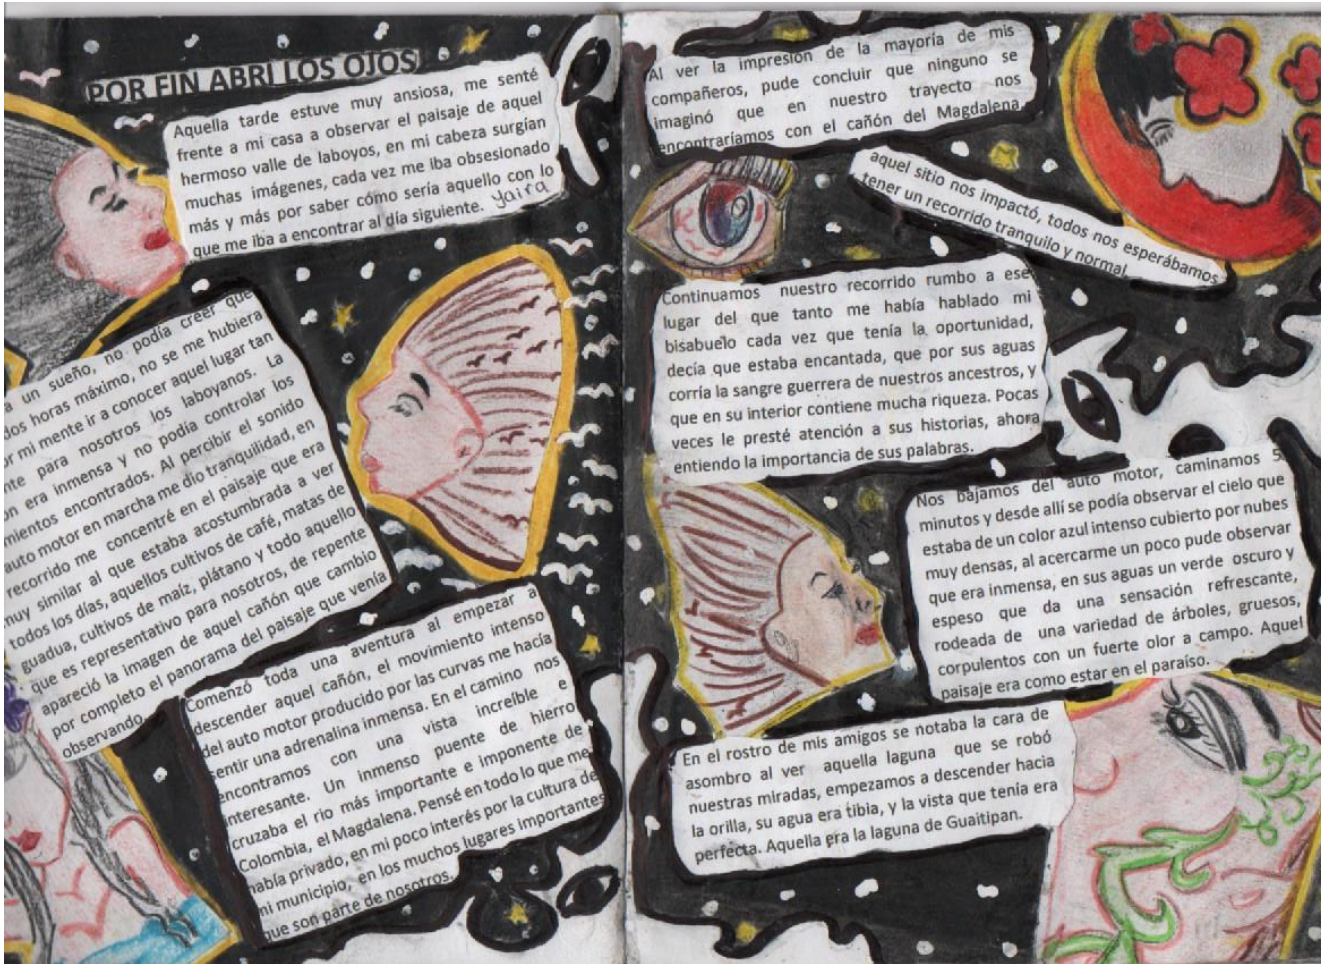 POR FIN ABRI LOS OJOS
Aquella tarde estuve muy ansiosa, me senté
frente a mi casa a observar el paisaje de aquel
hermoso valle de laboyos, en mi cabeza surgían
muchas imágenes, cada vez me iba obsesionado
más y más por saber cómo sería aquello con lo
que me iba a encontrar al día siguiente. Yaira
un sueño, no podía creer que
dos horas máximo, no se me hubiera
mi mente ir a conocer aquel lugar tan
para nosotros los laboyanos. La
era inmensa y no podía controlar los
encontrados. Al percibir el sonido
auto motor en marcha me dio tranquilidad, en
recorrido me concentré en el paisaje que era
muy similar al que estaba acostumbrada a ver
todos los días, aquellos cultivos de café, matas de
guadua, cultivos de maíz, plátano y todo aquello
que es representativo para nosotros, de repente
apareció la imagen de aquel cañón que cambio
por completo el panorama del paisaje que venía
observando.
Comenzó toda una aventura al empezar a
descender aquel cañón, el movimiento intenso
del auto motor producido por las curvas me hacía
sentir una adrenalina inmensa. En el camino nos
encontramos con una vista increíble e
interesante. Un inmenso puente de hierro
cruzaba el rio más importante e imponente de
Colombia, el Magdalena. Pensé en todo lo que me
había privado, en mi poco interés por la cultura de
mi municipio, en los muchos lugares importantes
que son parte de nosotros.
Al ver la impresión de la mayoría de mis
compañeros, pude concluir que ninguno se
imaginó que en nuestro trayecto nos
encontraríamos con el cañón del Magdalena,
aquel sitio nos impactó, todos nos esperábamos
tener un recorrido tranquilo y normal.
Continuamos nuestro recorrido rumbo a ese
lugar del que tanto me había hablado mi
bisabuelo cada vez que tenía la oportunidad,
decía que estaba encantada, que por sus aguas
corría la sangre guerrera de nuestros ancestros, y
que en su interior contiene mucha riqueza. Pocas
veces le presté atención a sus historias, ahora
entiendo la importancia de sus palabras.
Nos bajamos del auto motor, caminamos 5
minutos y desde allí se podía observar el cielo que
estaba de un color azul intenso cubierto por nubes
muy densas, al acercarme un poco pude observar
que era inmensa, en sus aguas un verde oscuro y
espeso que da una sensación refrescante,
rodeada de una variedad de árboles, gruesos,
corpulentos con un fuerte olor a campo. Aquel
paisaje era como estar en el paraíso.
En el rostro de mis amigos se notaba la cara de
asombro al ver aquella laguna que se robó
nuestras miradas, empezamos a descender hacia
la orilla, su agua era tibia, y la vista que tenía era
perfecta. Aquella era la laguna de Guaitipan.